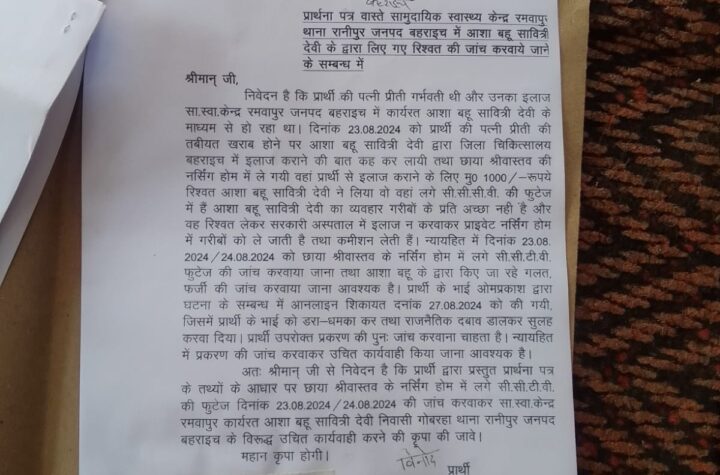 बहराइच
प्रार्थना पत्र वास्ते सामुदायिक स्वास्थ्य केन्द्र रमवापुर
थाना रानीपुर जनपद बहराइच में आशा बहू सावित्री
देवी के द्वारा लिए गए रिश्वत की जांच करवाये जाने
के सम्बन्ध में
श्रीमान् जी,
निवेदन है कि प्रार्थी की पत्नी प्रीती गर्भवती थी और उनका इलाज
सा.स्वा.केन्द्र रमवापुर जनपद बहराइच में कार्यरत आशा बहू सावित्री देवी के
माध्यम से हो रहा था। दिनांक 23.08.2024 को प्रार्थी की पत्नी प्रीती की
तबीयत खराब होने पर आशा बहू सावित्री देवी द्वारा जिला चिकित्सालय
बहराइच में इलाज कराने की बात कह कर लायी तथा छाया श्रीवास्तव की
नर्सिंग होम में ले गयी वहां प्रार्थी से इलाज कराने के लिए मु0 1000/–रूपये
रिश्वत आशा बहू सावित्री देवी ने लिया वो वहां लगे सी.सी.सी.वी. की फुटेज
में हैं आशा बहू सावित्री देवी का व्यवहार गरीबों के प्रति अच्छा नही है और
वह रिश्वत लेकर सरकारी अस्पताल में इलाज न करवाकर प्राइवेट नर्सिंग होम
में गरीबों को ले जाती है तथा कमीशन लेती हैं। न्यायहित में दिनांक 23.08.
2024/24.08.2024 को छाया श्रीवास्तव के नर्सिंग होम में लगे सी.सी.टी.वी.
फुटेज की जांच करवाया जाना तथा आशा बहू के द्वारा किए जा रहे गलत,
फर्जी की जांच करवाया जाना आवश्यक है। प्रार्थी के भाई ओमप्रकाश द्वारा
घटना के सम्बन्ध में आनलाइन शिकायत दनांक 27.08.2024 को की गयी,
जिसमें प्रार्थी के भाई को डरा–धमका कर तथा राजनैतिक दबाव डालकर सुलह
करवा दिया। प्रार्थी उपरोक्त प्रकरण की पुनः जांच करवाना चाहता है। न्यायहित
में प्रकरण की जांच करवाकर उचित कार्यवाही किया जाना आवश्यक है।
अतः श्रीमान जी से निवेदन है कि प्रार्थी द्वारा प्रस्तुत प्रार्थना पत्र
के तथ्यों के आधार पर छाया श्रीवास्तव के नर्सिंग होम में लगे सी.सी.टी.वी.
की फुटेज दिनांक 23.08.2024/24.08.2024 की जांच करवाकर सा.स्वा.केन्द्र
रमवापुर कार्यरत आशा बहू सावित्री देवी निवासी गोबरहा थाना रानीपुर जनपद
बहराइच के विरूद्ध उचित कार्यवाही करने की कृपा की जावे।
महान कृपा होगी।
विनोद
प्रार्थी